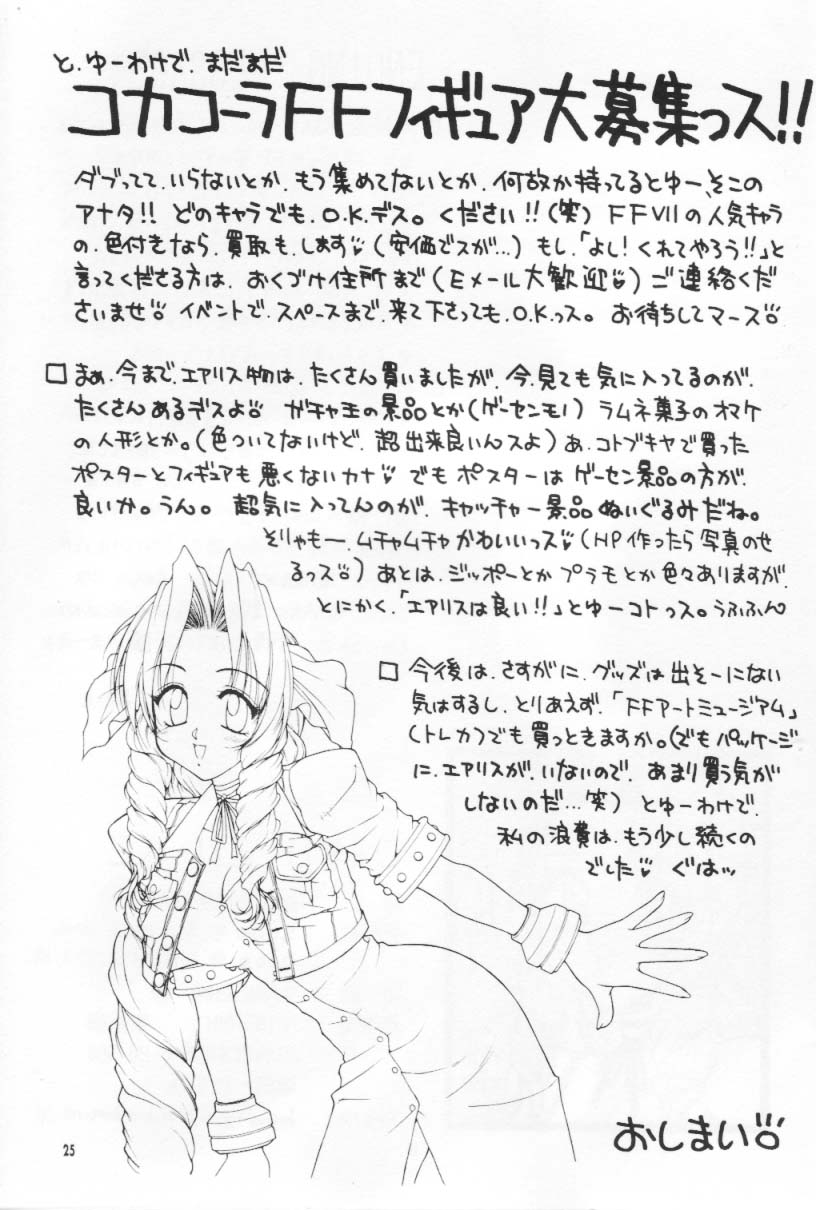 と、ゆーわけで、まだまだ
コカコーラFFフィギュア大募集っス!!
ダブってて、いらないとか、もう集めてないとか、何故か持ってるとゆー、そこの
アナタ!! どのキャラでも、O.K.デス。ください!!(笑) FFVIIの人気キャラ
の、色付きなら、買取も、します(安価でスが…) もし、「よし!くれてやろう!!」と
言ってくださる方は、おくづけ住所まで(Eメール大歓迎)ご連絡くだ
さいませ イベントで、スペースまで、来て下さっても、O.K.っス。お待ちしてマース
□ まぁ、今まで、エアリス物は、たくさん買いましたが、今、見ても気に入ってるのが、
たくさんあるデスよ ガチャ王の景品とか(ゲーセンモノ) ラムネ菓子のオマケ
の人形とか。(色ついてないけど、超出来良いんスよ) あ、コトブキヤで買った
ポスターとフィギュアも悪くないカナ でもポスターはゲーセン景品の方が、
良いか。うん。 超気に入ってんのが、キャッチャー景品ぬいぐるみだね。
そりゃもー、ムチャムチャかわいいっス(HP作ったら写真のせ
るっス) あとは、ジッポーとかプラモとか色々ありますが、
とにかく、「エアリスは良い!!」とゆーコトっス。うふふん
□ 今後は、さすがに、グッズは出そーにない
気はするし、とりあえず、「FFアートミュージアム」
(トレカ)でも買っときますか。(でもパッケージ
に、エアリスが、いないので、あまり買う気が
しないのだ…笑) とゆーわけで、
私の浪費は、もう少し続くの
でした ぐはッ
おしまい
25